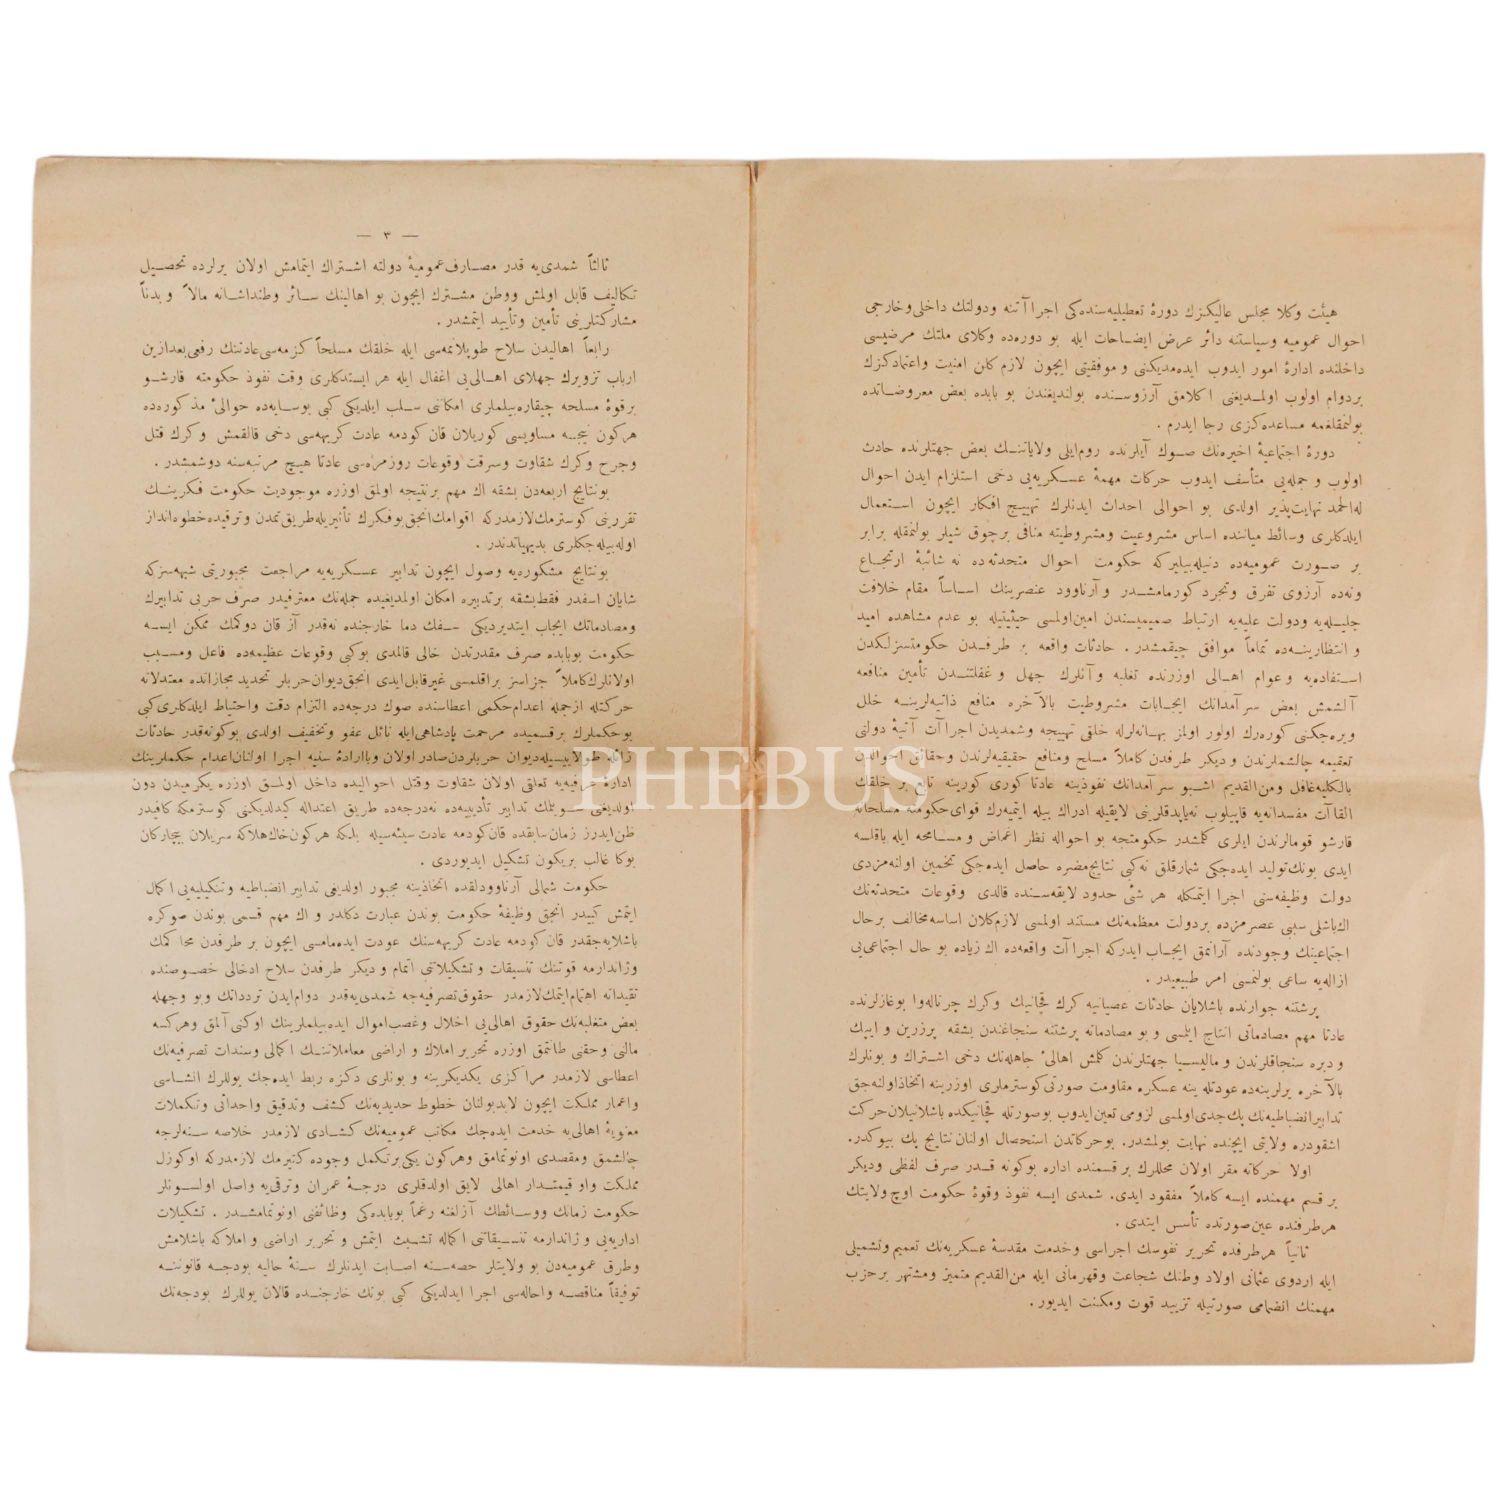 هیئت وکلا مجلس عالیکزك دورهٔ تعطیلیه‌سنده‌کی اجراآتنه ودولتك داخلی وخارجی
احوال عمومیه وسیاستنه دائر عرض ایضاحات ایله بو دوره‌ده وکلای ملتك مرضیسی
داخلنده ادارهٔ امور ایدوب ایده‌مدیکنی و موفقیتی ایچون لازم کلن امنیت واعتمادکزك
بردوام اولوب اولمدیغنی اکلامق آرزوسنده بولندیغندن بو بابده بعض معروضاتده
بولنمقلغمه مساعده‌کزی رجا ایدرم .
دورهٔ اجتماعیهٔ اخیره‌نك صوك آیلرنده روم‌ایلی ولایاتنك بعض جهتلرنده حادث
اولوب و جمله‌یی متأسف ایدوب حرکات مهمهٔ عسکریه‌یی دخی استلزام ایدن احوال
له‌الحمد نهایت‌پذیر اولدی بو احوالی احداث ایدنلرك تهییج افکار ایچون استعمال
ایلدکلری وسائط میاننده اساس مشروعیت ومشروطیته منافی برچوق شیلر بولنمقله برابر
بر صورت عمومیه‌ده دنیله‌بیلیرکه حکومت احوال متحدثه‌ده نه شائبهٔ ارتجاع
ونه‌ده آرزوی تفرق وتجرد کورمامشدر و آرناوود عنصرینك اساساً مقام خلافت
جلیله‌یه ودولت علیه‌یه ارتباط صمیمیسندن امین‌اولمسی حیثیتیله بو عدم مشاهده امید
و انتظارینه‌ده تماماً موافق چیقمشدر . حادثات واقعه بر طرفدن حکومتسزلکدن
استفاده‌یه و عوام اهالی اوزرنده تغلبه و آنلرك جهل و غفلتندن تأمین منافعه
آلشمش بعض سرآمدانك ایجابات مشروطیت بالآخره منافع ذاتیه‌لرینه خلل
ویره‌جکنی کوره‌رك اولور اولمز بهانه‌لرله خلقی تهییجه وشمدیدن اجراآت آتیهٔ دولتی
تعقیمه چالشملرندن و دیکر طرفدن کاملاً مسلح ومنافع حقیقیه‌لرندن وحقائق احوالدن
بالکلیه‌غافل ومن‌القدیم اشبو سرآمدانك نفوذینه عادتا کوری کورینه تابع بر خلقك
القاآت مفسدانه‌یه قاپیلوب نه‌یاپدقلرینی لایقیله ادراك بیله ایتمیه‌رك قوای‌حکومته مسلحانه
قارشو قومالرندن ایلری کلمشدر حکومتجه بو احواله نظر اغماض و مسامحه ایله باقلسه
ایدی بونك‌تولید ایده‌جکی شمارقلق نه‌کبی نتایج‌مضره حاصل ایده‌جکی تخمین اولنه‌مزدی
دولت وظیفه‌سنی اجرا ایتمکله هر شئی حدود لایقه‌سنده قالدی وقوعات متحدثه‌نك
اك‌باشلی سببی عصرمزده بردولت معظمه‌نك مستند اولمسی لازم‌کلان اساسه مخالف برحال
اجتماعینك وجودنده آرانمق ایجاب ایدرکه اجراآت واقعه‌ده اك زیاده بو حال اجتماعی‌یی
ازاله‌یه ساعی بولنمسی امر طبیعیدر .
پرشتنه جوارنده باشلایان حادثات عصیانیه کرك قچانیك وکرك چرناله‌وا بوغازلرنده
عادتا مهم مصادماتی انتاج ایلمسی و بو مصادماته پرشتنه سنجاغندن بشقه پرزرین و ایپك
و دبره سنجاقلرندن و مالیسیا جهتلرندن کلمش اهالیٔ جاهله‌نك دخی اشتراك و بونلرك
بالآخره یرلرینه‌ده عودتله ینه عسکره مقاومت صورتی کوسترملری اوزرینه اتخاذاولنه‌جق
تدابیرانضباطیه‌نك پك‌جدی‌اولمسی لزومی تعین‌ایدوب بوصورتله قچانیکده باشلانیلان‌حرکت
اشقودره ولایتی ایچنده نهایت بولمشدر. بوحرکاتدن استحصال اولنان نتایج پك بیوکدر.
اولا حرکاته مقر اولان محللرك برقسمنده اداره بوکونه قدر صرف لفظی ودیکر
بر قسم مهمنده ایسه کاملاً مفقود ایدی. شمدی ایسه نفوذ وقوهٔ حکومت اوچ ولایتك
هرطرفنده عین‌صورتده تأسس ایتدی .
ثانیاً هرطرفده تحریر نفوسك اجراسی وخدمت مقدسهٔ عسکریه‌نك تعمیم وتشمیلی
ایله اردوی عثمانی اولاد وطنك شجاعت وقهرمانی ایله من‌القدیم متمیز ومشتهر برحزب
مهمنك انضمامی صورتیله تزیید قوت ومکنت ایدیور .
— ٣ —
ثالثاً شمدی‌یه قدر مصارف‌عمومیهٔ دولته اشتراك ایتمامش اولان یرلرده تحصیل
تکالیف قابل اولمش ووطن مشترك ایچون بو اهالینك سائر وطنداشانه مالاً وبدناً
مشارکتلرینی تأمین وتأیید ایتمشدر .
رابعاً اهالیدن سلاح طوپلانمه‌سی ایله خلقك مسلحاً کزمه‌سی‌عادتنك رفعی‌بعدازین
ارباب تزویرك جهلای اهالی‌یی اغفال ایله هر ایستدکلری وقت نفوذ حکومته قارشو
برقوهٔ مسلحه چیقاره‌بیلملری امکاننی سلب ایلدیکی کبی بوسایه‌ده حوالیٔ مذکوره‌ده
هرکون نیجه مساویسی کوریلان قان کودمه عادت کریهه‌سی دخی قالقمش وکرك قتل
وجرح وکرك شقاوت وسرقت وقوعات روزمره‌سی عادتا هیچ مرتبه‌سنه دوشمشدر .
بونتایج اربعه‌دن بشقه اك مهم برنتیجه اولمق اوزره موجودیت حکومت فکرینك
تقررینی کوسترمك‌لازمدرکه اقوامك‌انجق‌بوفکرك تأثیریله‌طریق‌تمدن وترقیده‌خطوه‌انداز
اوله‌بیله‌جکلری بدیهیاتدندر .
بونتایج مشکوره‌یه وصول ایچون تدابیر عسکریه‌یه مراجعت مجبوریتی شبهه‌سزکه
شایان اسفدر فقط‌بشقه برتدبیره امکان اولمدیغیده جمله‌نك معترفیدر صرف حربی تدابیرك
ومصادماتك ایجاب ایتدیردیکی سفك دما خارجنده نه‌قدر آز قان دوکمك ممکن ایسه
حکومت بوبابده صرف مقدرتدن خالی قالمدی بوکبی وقوعات عظیمه‌ده فاعل ومسبب
اولانلرك‌کاملاً جزاسز براقلمسی غیرقابل‌ایدی انجق‌دیوان‌حربلر تحدید مجازاتده معتدلانه
حرکتله ازجمله اعدام‌حکمی اعطاسنده صوك درجه‌ده التزام دقت واحتیاط ایلدکلری‌کبی
بوحکملرك برقسمیده مرحمت پادشاهی‌ایله نائل عفو وتخفیف اولدی بوکونه‌قدر حادثات
زائله طولاییسیله‌دیوان حربلردن‌صادر اولان وباارادهٔ سنیه اجرا اولنان‌اعدام حکملرینك
ادارهٔ عرفیه‌یه تعلقی اولان شقاوت وقتل احوالیده داخل اولمق اوزره یکرمیدن دون
اولدیغنی سویلمك تدابیر تأدیبیه‌ده نه‌درجه‌ده طریق اعتداله کیدلدیکنی کوسترمکه کافیدر
ظن‌ایدرز زمان‌سابقده قان‌کودمه عادت سیئه‌سیله بلکه هرکون‌خاك‌هلاکه سریلان بیچارکان
بوکا غالب بریکون تشکیل ایدیوردی .
حکومت شمالی آرناوودلقده اتخاذینه مجبور اولدیغی تدابیر انضباطیه وتنکیلیه‌یی اکمال
ایتمش کبیدر انجق وظیفهٔ حکومت بوندن عبارت دکلدر و اك مهم قسمی بوندن صوکره
باشلایه‌جقدر قان کودمه عادت کریهه‌سنك عودت ایده‌مامسی ایچون بر طرفدن محاکمك
وژاندارمه قوتنك تنسیقات وتشکیلاتنی اتمام ودیکر طرفدن سلاح ادخالی خصوصنده
تقیدانه اهتمام‌ایتمك‌لازمدر حقوق‌تصرفیه‌جه شمدی‌یه‌قدر دوام‌ایدن تردداتك وبو وجهله
بعض متغلبه‌نك حقوق اهالی‌یی اخلال وغصب‌اموال ایده‌بیلملرینك اوکنی آلمق وهرکسه
مالنی وحقنی طانتمق اوزره تحریر املاك و اراضی معاملاتنك اکمالی وسندات تصرفیه‌نك
اعطاسی لازمدر مراکزی یکدیکرینه و بونلری دکزه ربط ایده‌جك یوللرك انشاسی
واعمار مملکت ایچون لابدبولنان خطوط حدیدیه‌نك کشف وتدقیق واحداثی وتکملات
معنویهٔ اهالی‌یه خدمت ایده‌جك مکاتب عمومیه‌نك کشادی لازمدر خلاصه سنه‌لرجه
چالشمق ومقصدی اونوتمامق وهرکون یکی‌برتکمل وجوده کتیرمك لازمدرکه اوکوزل
مملکت واو قیمتدار اهالی لایق اولدقلری درجهٔ عمران وترقی‌یه واصل اولسونلر
حکومت زمانك ووسائطك آزلغنه رغماً بوبابده‌کی وظائفنی اونوتمامشدر . تشکیلات
اداریه‌یی وژاندارمه تنسیقاتنی اکماله تشبث ایتمش وتحریر اراضی واملاکه باشلامش
وطرق عمومیه‌دن بو ولایتلر حصه‌سنه اصابت ایدنلرك سنهٔ حالیه بودجه قانوننه
توفیقاً مناقصه واحاله‌سی اجرا ایدلدیکی کبی بونك خارجنده قالان یوللرك بودجه‌نك
PHEBUS